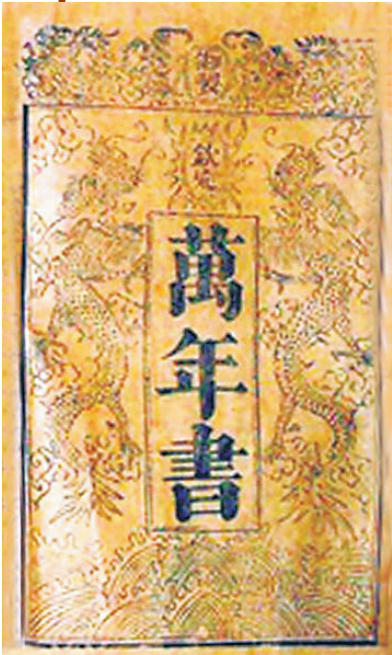 御製
欽定
萬年書